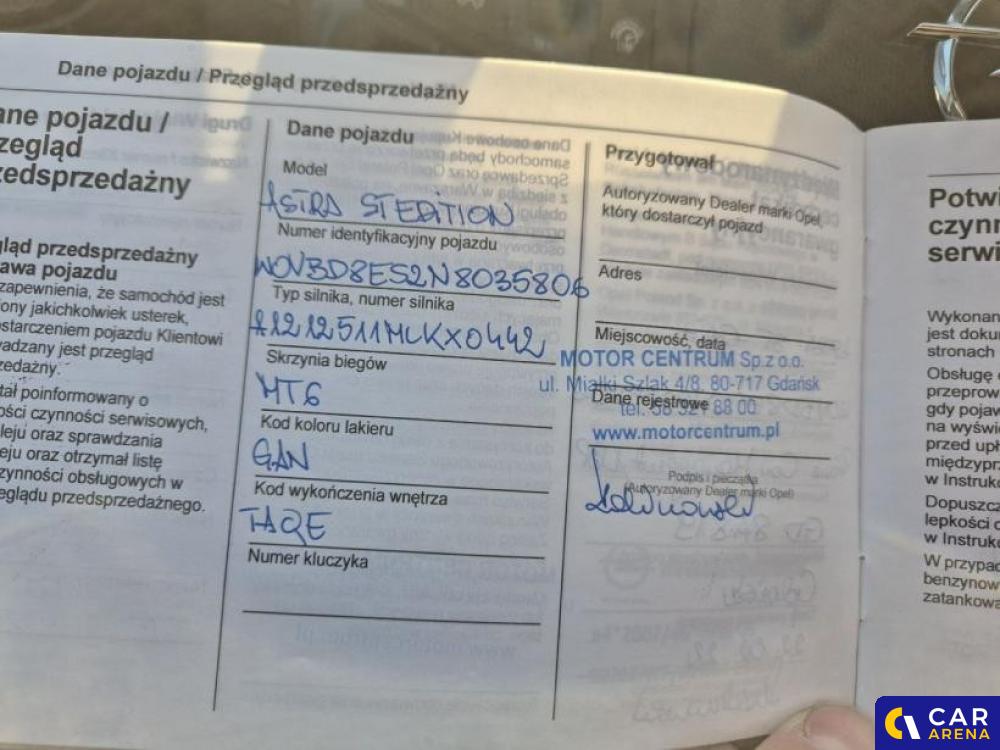 Dane pojazdu / Przegląd przedsprzedażny
ane pojazdu /
zegląd
zedsprzedażny
gląd przedsprzedażny
awa pojazdu
zapewnienia, że samochód jest
ony jakichkolwiek usterek,
starczeniem pojazdu Klientowi
wadzany jest przegląd
zedażny.
tał poinformowany o
ości czynności serwisowych,
leju oraz sprawdzania
eju oraz otrzymał listę
zynności obsługowych w
eglądu przedsprzedażnego.
Dane pojazdu
Model
ASTRA ST EDITION
Numer identyfikacyjny pojazdu
W0V3D8ES2N8035806
Typ silnika, numer silnika
A1212511MLKX0442
Skrzynia biegów
MT6
Kod koloru lakieru
GAN
Kod wykończenia wnętrza
TAQE
Numer kluczyka
Przygotował
Autoryzowany Dealer marki Opel,
który dostarczył pojazd
Adres
Miejscowość, data
MOTOR CENTRUM Sp.z o.o.
ul. Miałki Szlak 4/8, 80-717 Gdańsk
Dane rejestrowe
tel. 58 321 88 00
www.motorcentrum.pl
Podpis i pieczątka
(Autoryzowany Dealer marki Opel)
Potwi
czynn
serwi
Wykonan
jest doku
stronach
Obsługę
przeprow
gdy pojaw
na wyświe
przed upł
międzyprz
w Instrukc
Dopuszcza
lepkości o
w Instrukc
W przypad
benzynow
zatankowa
CAR
ARENA